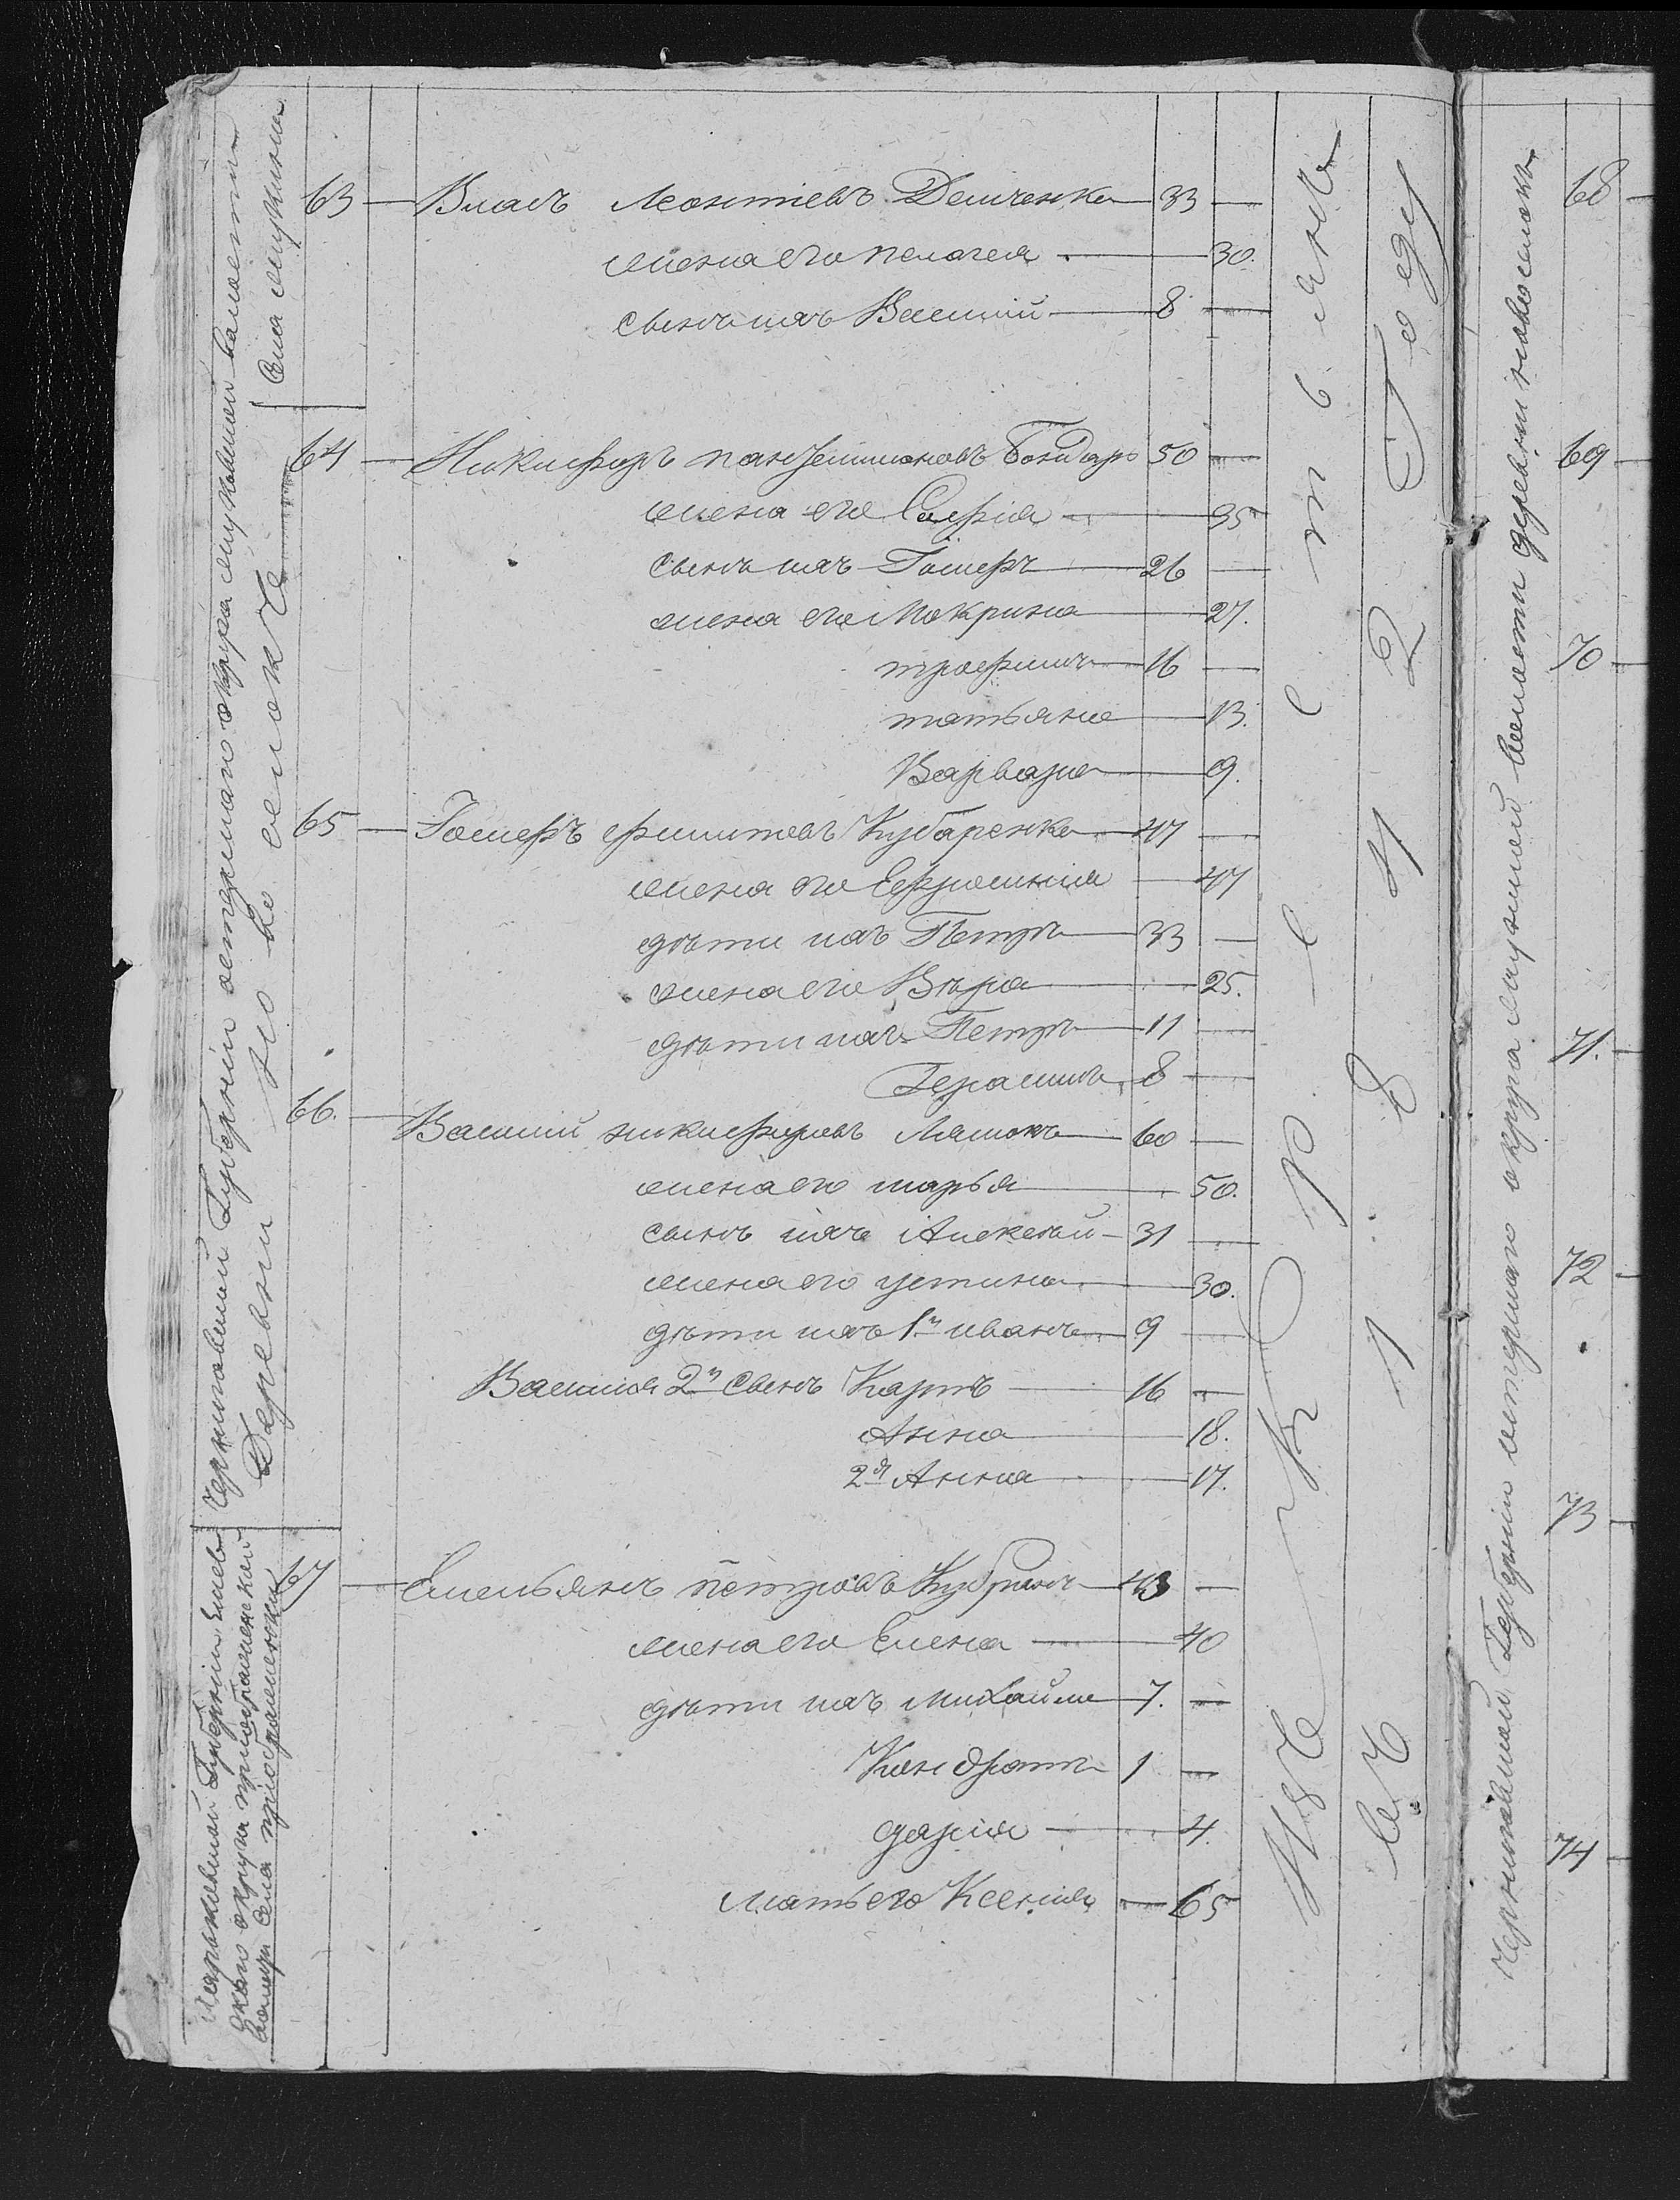 63 — Власъ Леонтіевъ Демченко — 33 —
жена его пелагея — 30.
сынъ ихъ Василій — 8 —
64 — Никифоръ пантелимоновъ Бондарь 50 —
жена его Софія — 35
сынъ ихъ Іосифъ — 26 —
жена его Мокрина — 27.
трофимъ — 16 —
татьяна — 13.
Варвара — 9.
65 — Іосифъ филиповъ Кубаренко — 47 —
жена его Ефросинія — 47
дѣти ихъ Петръ — 33 —
жена его Вѣра — 25.
дѣти ихъ Петръ — 11 —
Герасимъ 8 —
66. — Василий никифоровъ Ляшокъ — 60 —
жена его марья — 50.
сынъ ихъ Алексѣй — 31 —
жена его устина — 30.
дѣти ихъ 1й иванъ — 9 —
Василия 2й сынъ Карпъ — 16 —
Анна — 18.
2я Анна — 17.
67 — Емельянъ петровъ — 43 —
жена его Елена — 40
дѣти ихъ михайло — 7. —
Кондратъ 1 —
дарія — 4.
мать его Ксенія — 65
Черниговской Губерніи остерскаго округа волости
Села
Деревни
Харьковской Губерніи
округа
Села
Изъ крестьянъ
Въ 1842 Году
68 —
69 —
70 —
71. —
72 —
73 —
74 —
Черниговской Губерніи остерскаго округа волости деревни